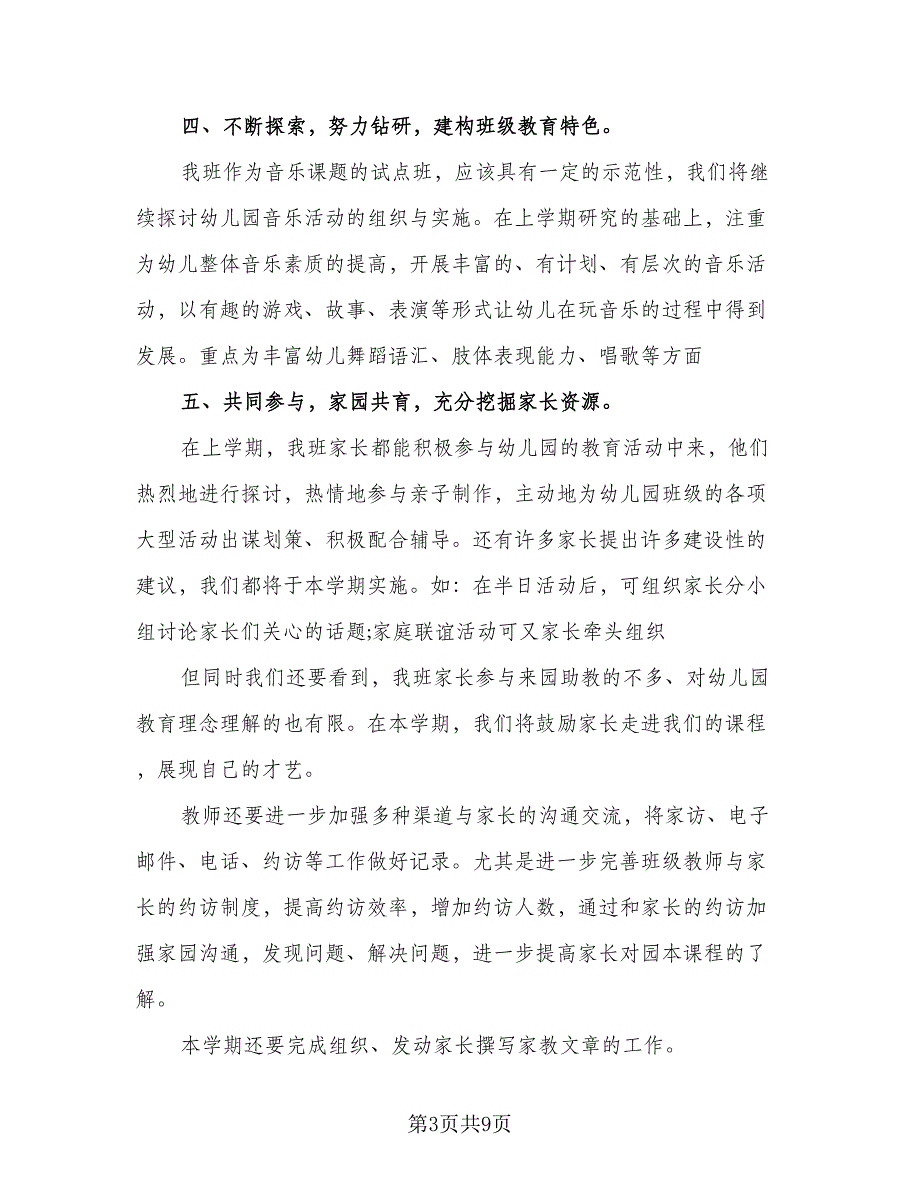 四、不断探索，努力钻研，建构班级教育特色。
我班作为音乐课题的试点班，应该具有一定的示范性，我们将继
续探讨幼儿园音乐活动的组织与实施。在上学期研究的基础上，注重
为幼儿整体音乐素质的提高，开展丰富的、有计划、有层次的音乐活
动，以有趣的游戏、故事、表演等形式让幼儿在玩音乐的过程中得到
发展。重点为丰富幼儿舞蹈语汇、肢体表现能力、唱歌等方面
五、共同参与，家园共育，充分挖掘家长资源。
在上学期，我班家长都能积极参与幼儿园的教育活动中来，他们
热烈地进行探讨，热情地参与亲子制作，主动地为幼儿园班级的各项
大型活动出谋划策、积极配合辅导。还有许多家长提出许多建设性的
建议，我们都将于本学期实施。如：在半日活动后，可组织家长分小
组讨论家长们关心的话题;家庭联谊活动可又家长牵头组织
但同时我们还要看到，我班家长参与来园助教的不多、对幼儿园
教育理念理解的也有限。在本学期，我们将鼓励家长走进我们的课程
，展现自己的才艺。
教师还要进一步加强多种渠道与家长的沟通交流，将家访、电子
邮件、电话、约访等工作做好记录。尤其是进一步完善班级教师与家
长的约访制度，提高约访效率，增加约访人数，通过和家长的约访加
强家园沟通，发现问题、解决问题，进一步提高家长对园本课程的了
解。
本学期还要完成组织、发动家长撰写家教文章的工作。
第3页共9页